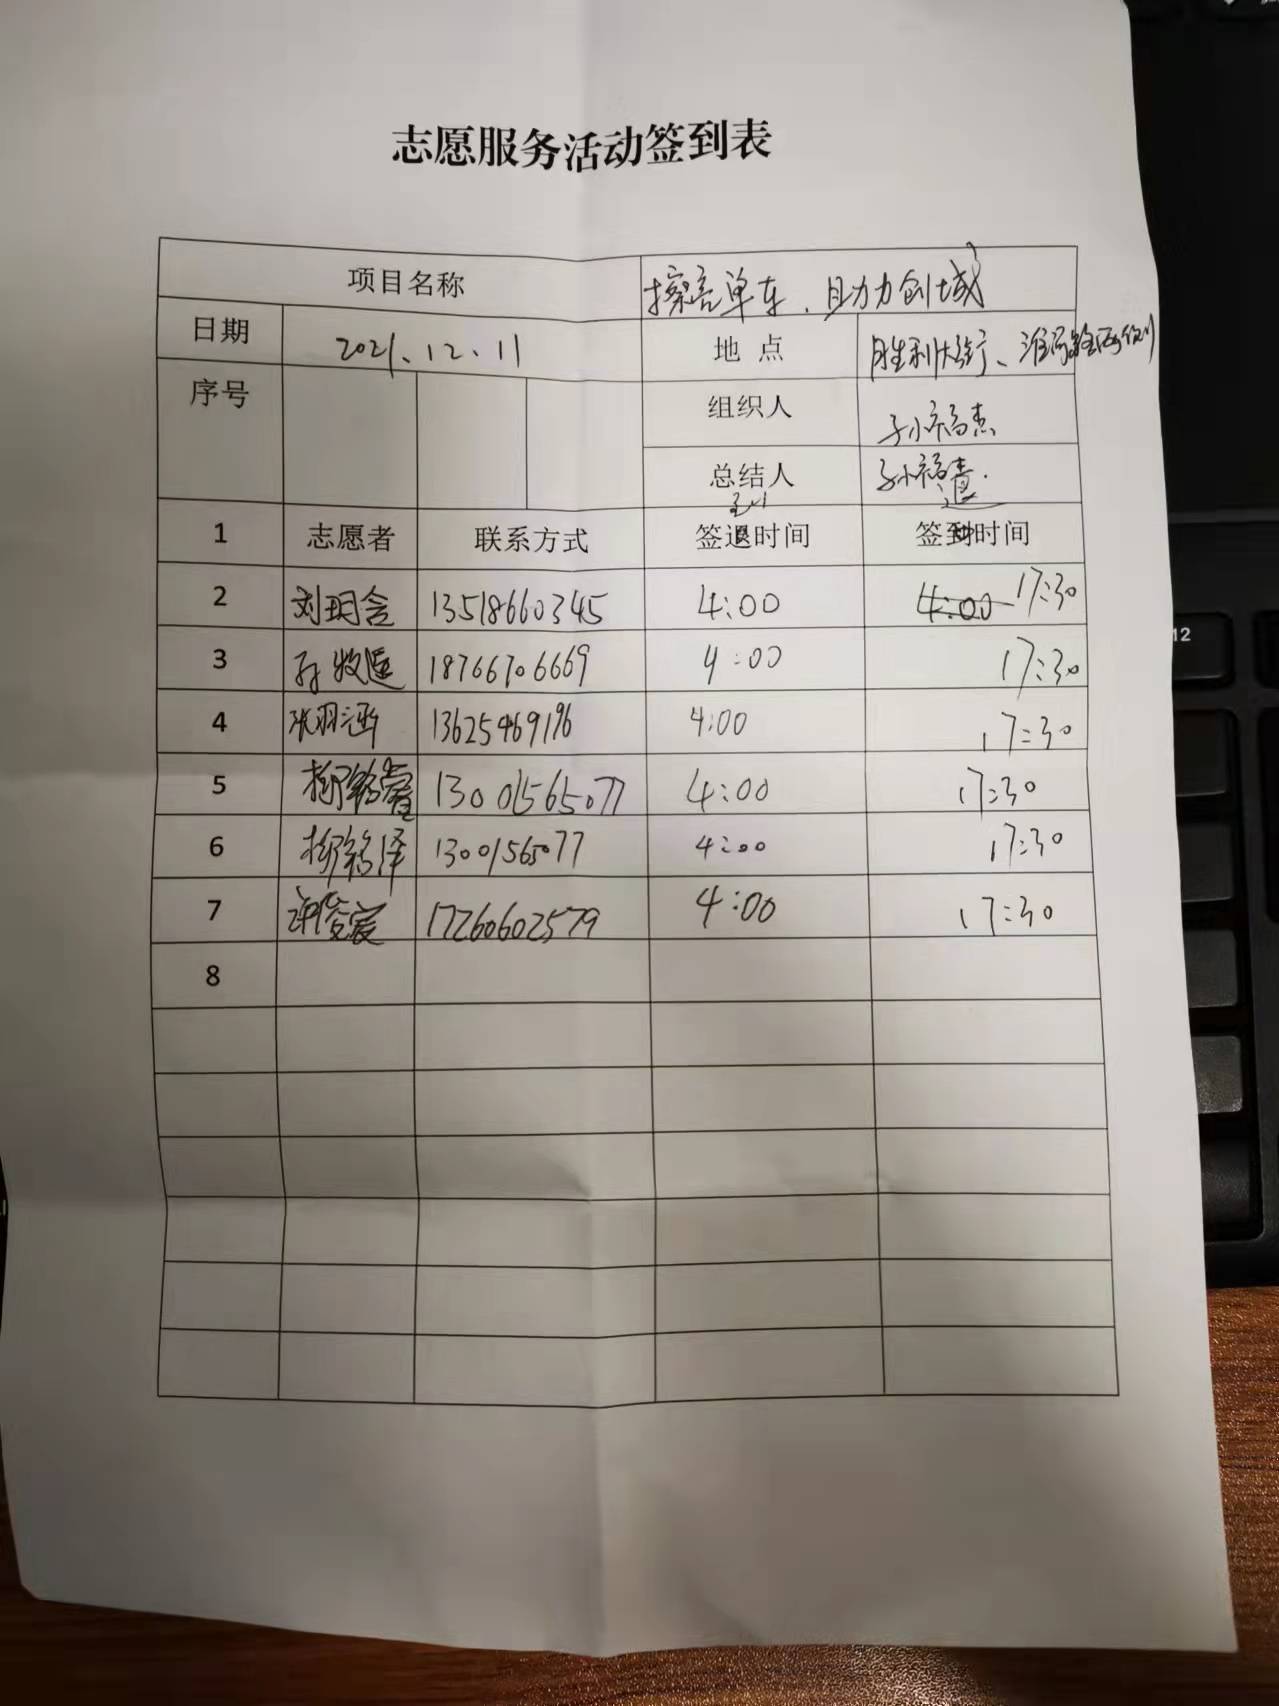 志愿服务活动签到表
项目名称 擦亮单车、助力创城
日期 2021.12.11 地 点 胜利大街、
序号 组织人
总结人
到 退
1 志愿者 联系方式 签退时间 签到时间
2 13518660345 4:00 4:00 17:30
3 孙牧遥 18766706669 4:00 17:30
4 张羽涵 13625469196 4:00 17:30
5 柳铭萱 13001565077 4:00 17:30
6 柳铭泽 13001565077 4:00 17:30
7 17260602579 4:00 17:30
8
12